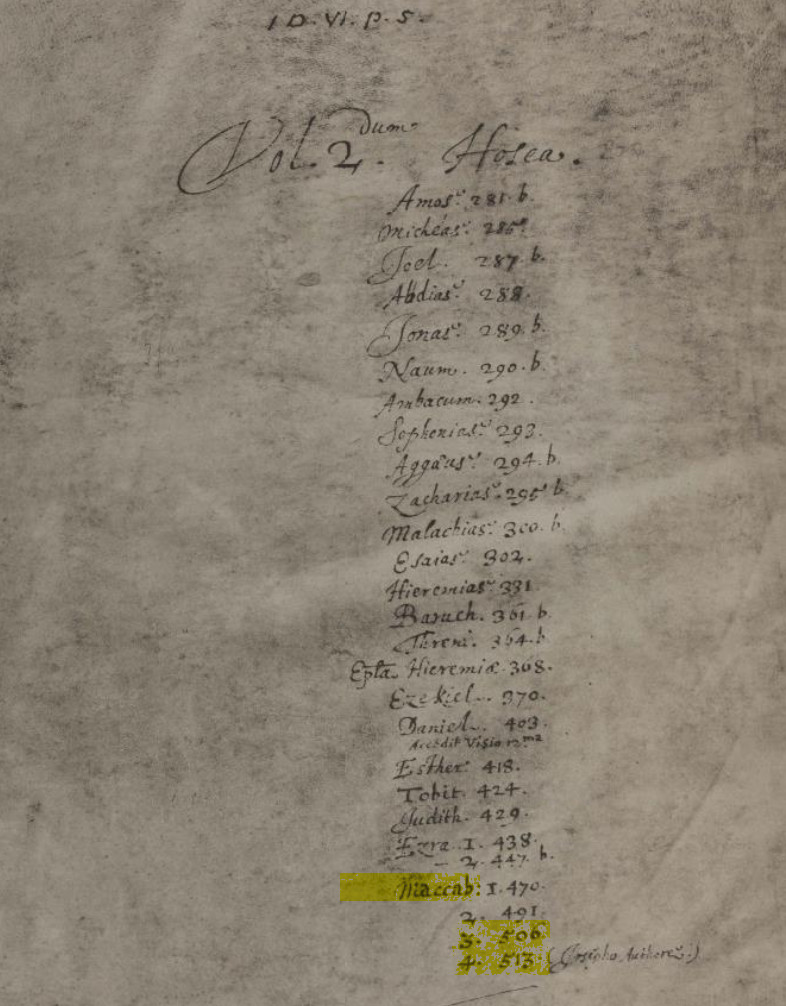 1 D. VI. p. 5.
Vol. 2.dum Hosea.
Amos. 281. b.
Micheas. 285
Joel. 287. b.
Abdias. 288.
Jonas. 289. b.
Naum. 290. b.
Ambacum. 292.
Sophonias. 293.
Aggæus. 294. b.
Zacharias. 295 b.
Malachias. 300. b.
Esaias. 302.
Hieremias. 331
Baruch. 361 b.
Threni. 364. b
Epla. Hieremiæ. 368.
Ezekiel. 370.
Daniel. 403.
Accedit Visio 12ma
Esther 418.
Tobit. 424.
Judith. 429.
Ezra. 1. 438.
— 2. 447. b.
Maccab: 1. 470.
2. 491.
3. 506
4. 513. (Josepho Authore.)